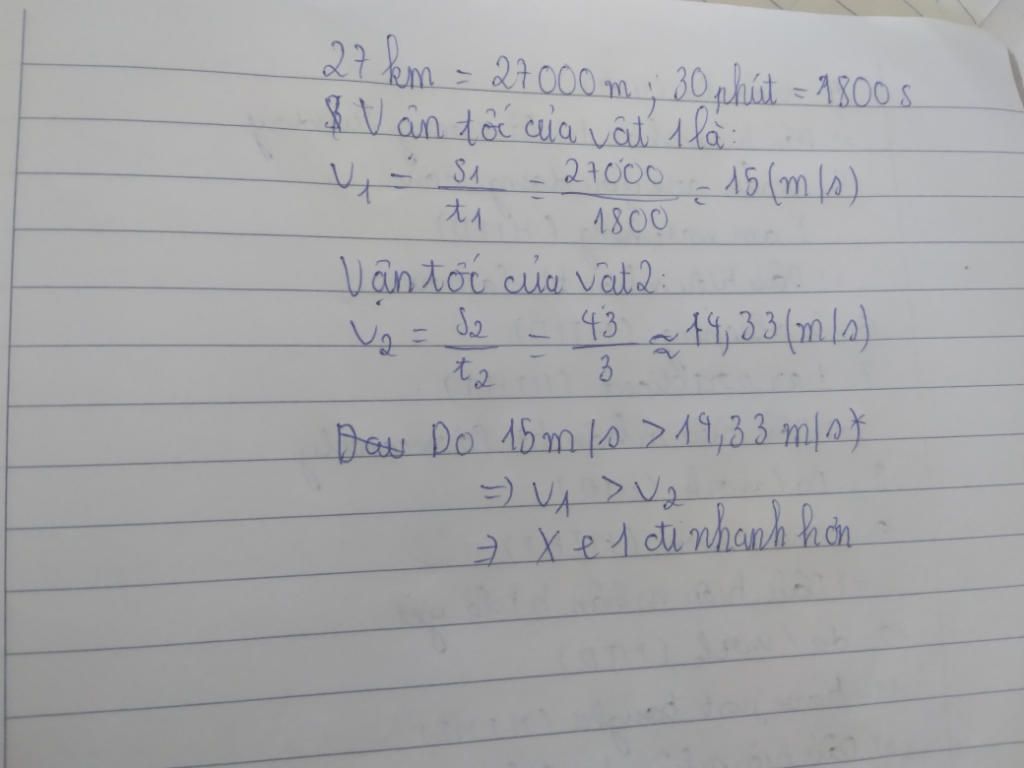 27 km = 27000 m ; 30 phút = 1800 s
Vận tốc của vật 1 là:
V1 = S1/t1 = 27000/1800 = 15 (m/s)
Vận tốc của vật 2:
V2 = S2/t2 = 43/3 ≈ 14,33 (m/s)
Do 15 m/s > 14,33 m/s
=> V1 > V2
=> Xe 1 đi nhanh hơn